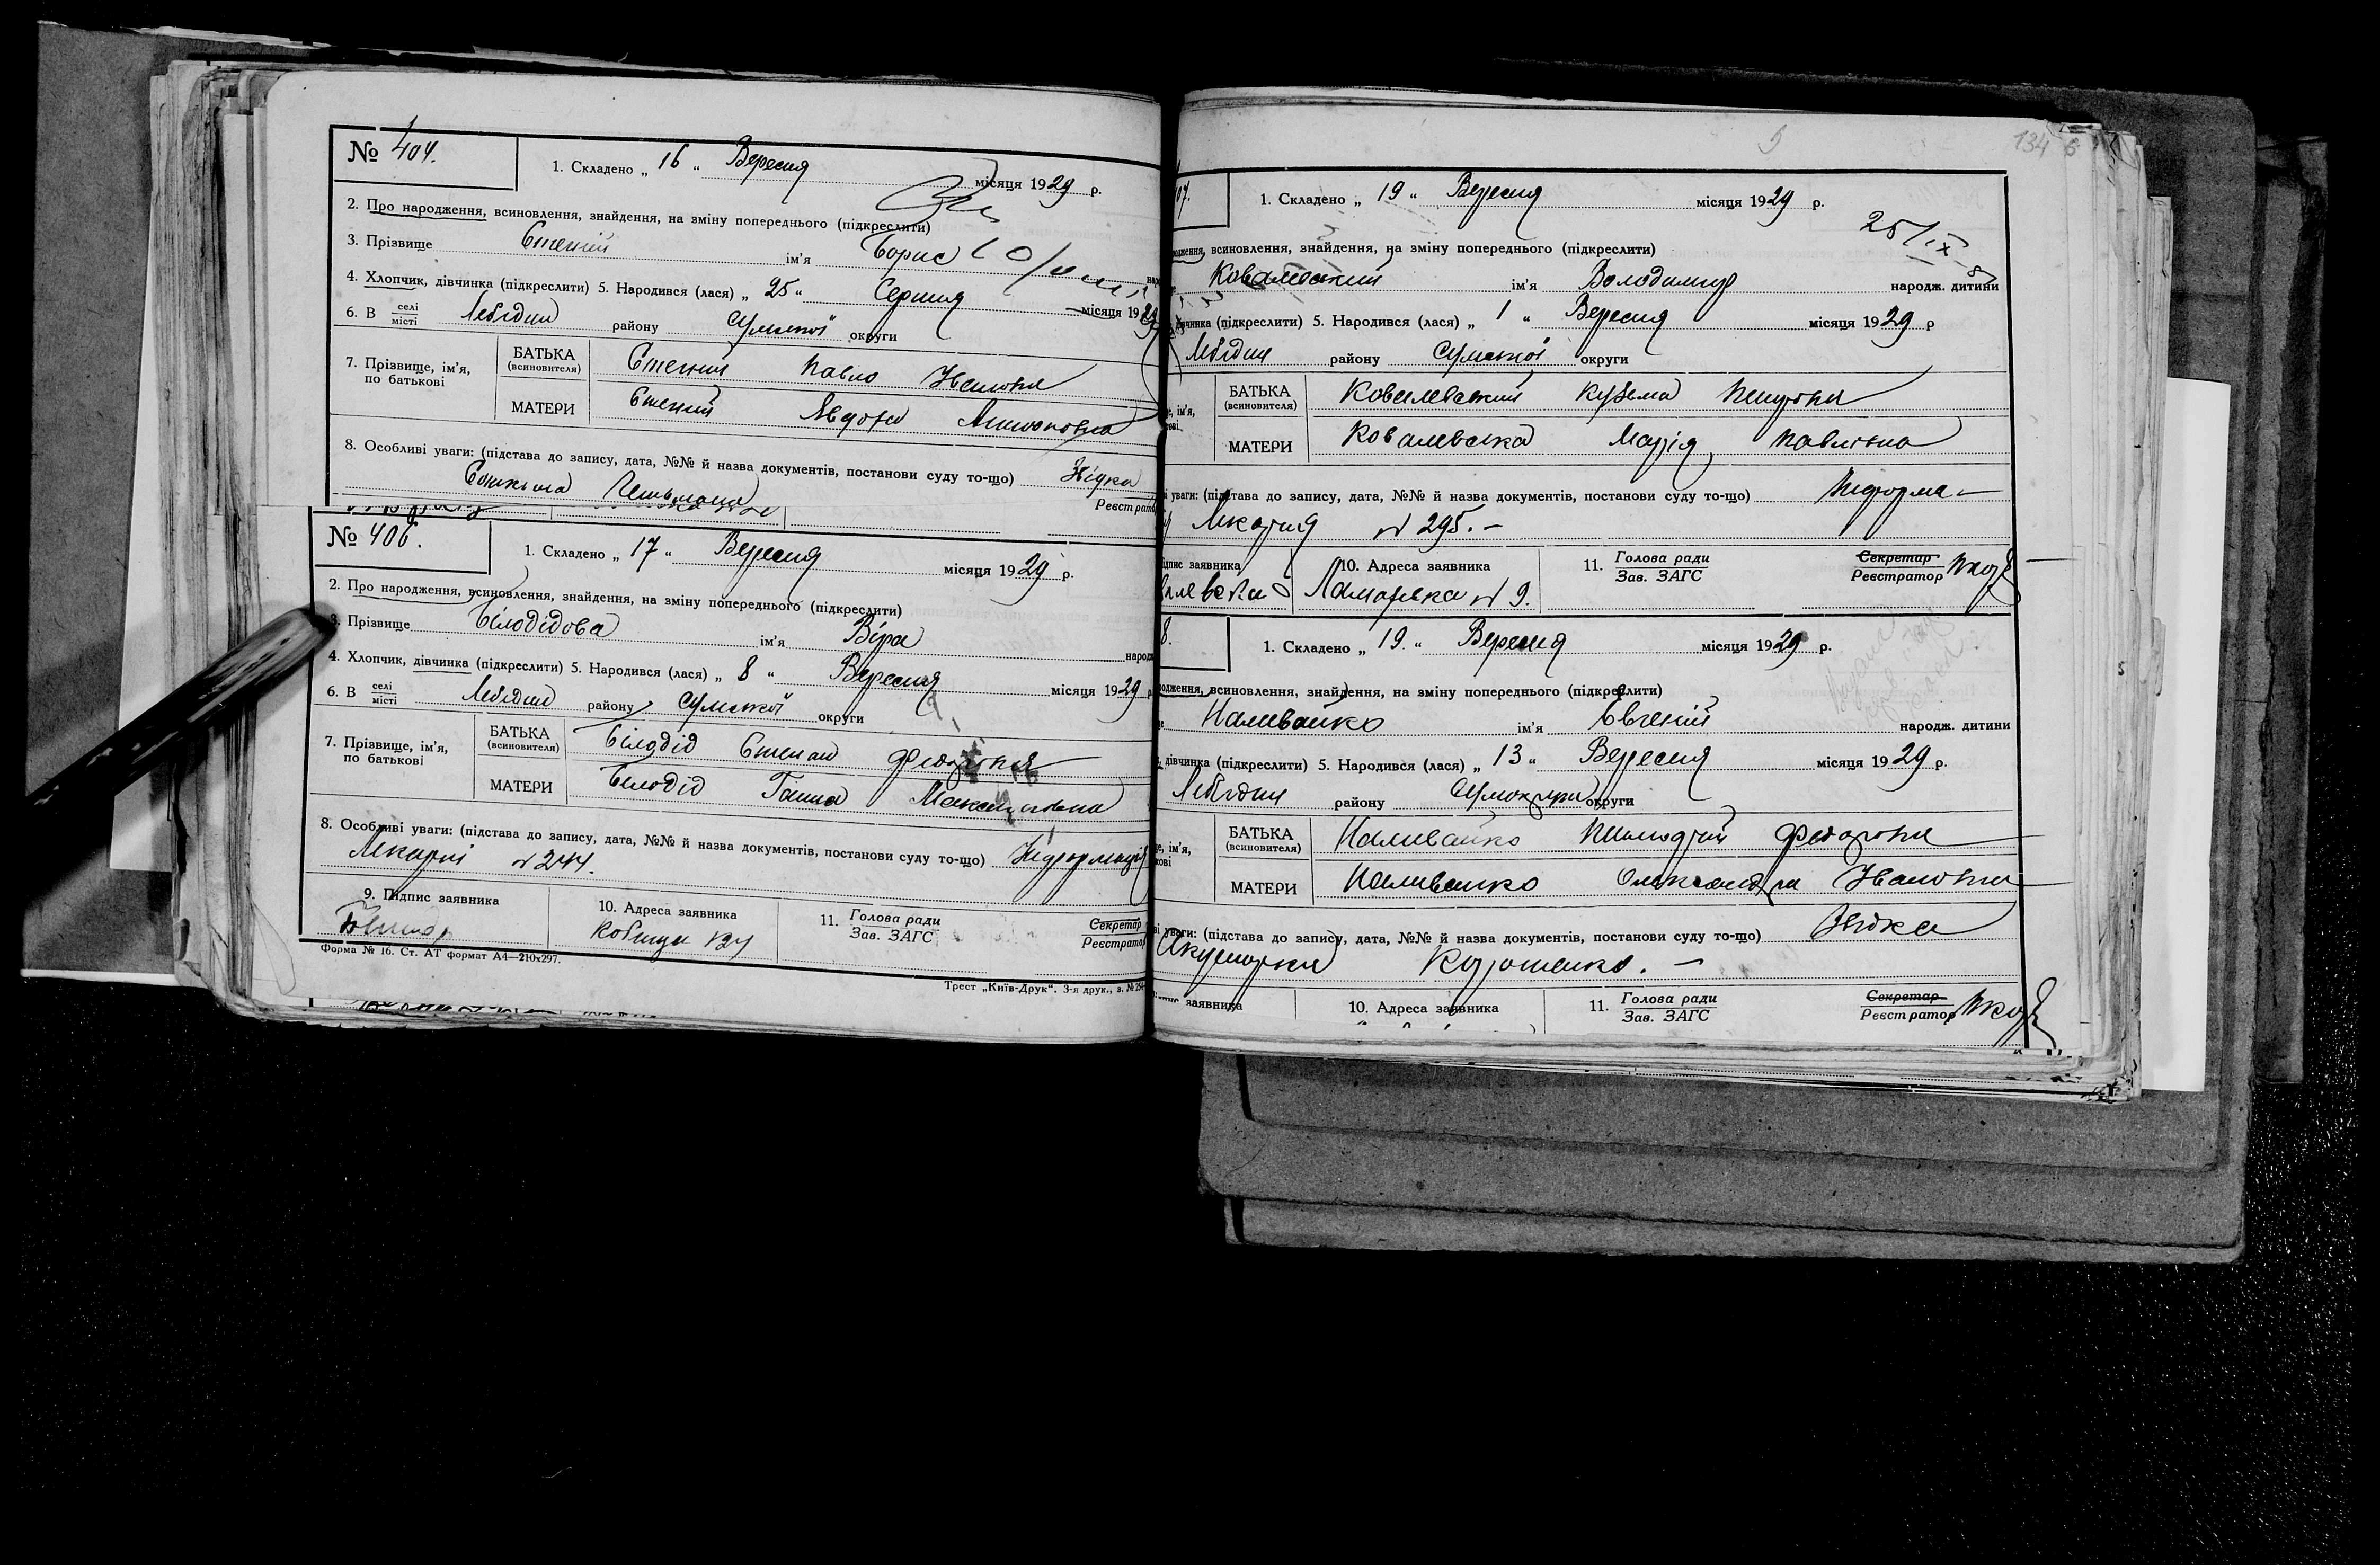 № 404.
1. Складено „ 16 “ Вересня місяця 1929 р.
2. Про народження, всиновлення, знайдення, на зміну попереднього (підкреслити)
3. Прізвище ім'я Борис
4. Хлопчик, дівчинка (підкреслити) 5. Народився (лася) „ 25 “ Серпня місяця 1929
6. В селі місті Лебідин району Сумської округи
7. Прізвище, ім'я, по батькові
БАТЬКА (всиновителя) Павло
МАТЕРИ Явдоха
8. Особливі уваги: (підстава до запису, дата, №№ й назва документів, постанови суду то-що)
Реєстратор
№ 406.
1. Складено „ 17 “ Вересня місяця 1929 р.
2. Про народження, всиновлення, знайдення, на зміну попереднього (підкреслити)
3. Прізвище Білодідова ім'я Віра народ
4. Хлопчик, дівчинка (підкреслити) 5. Народився (лася) „ 8 “ Вересня місяця 1929 р
6. В селі місті Лебідин району Сумської округи
7. Прізвище, ім'я, по батькові
БАТЬКА (всиновителя) Білодід Степан Федорович
МАТЕРИ Білодід Ганна Максимовна
8. Особливі уваги: (підстава до запису, дата, №№ й назва документів, постанови суду то-що) Інформація
Лікарні № 244.
9. Підпис заявника
10. Адреса заявника
11. Голова ради Зав. ЗАГС
Секретар Реєстратор
Форма № 16. Ст. АТ формат А4—210х297.
Трест „Київ-Друк“. 3-я друк., з. №
134
07.
1. Складено „ 19 “ Вересня місяця 1929 р.
25/IX
одження, всиновлення, знайдення, на зміну попереднього (підкреслити)
Ковалевський ім'я Володимир народж. дитини
дівчинка (підкреслити) 5. Народився (лася) „ 1 “ Вересня місяця 1929 р
Лебідин району Сумської округи
е, ім'я,
БАТЬКА (всиновителя) Ковалевський Кузьма Петрович
МАТЕРИ Ковалевська Марія Павлівна
уваги: (підстава до запису, дата, №№ й назва документів, постанови суду то-що) Інформа-
Лікарня № 295. –
підпис заявника
10. Адреса заявника
11. Голова ради Зав. ЗАГС
Секретар Реєстратор
алевська
№ 9.
8.
1. Складено „ 19. “ Вересня місяця 1929 р.
одження, всиновлення, знайдення, на зміну попереднього (підкреслити)
Наливайко ім'я Євгеній народж. дитини
дівчинка (підкреслити) 5. Народився (лася) „ 13 “ Вересня місяця 1929 р.
Лебідин району округи
е, ім'я,
БАТЬКА (всиновителя) Наливайко Федорович
МАТЕРИ Наливайко Олександра Івановна
уваги: (підстава до запису, дата, №№ й назва документів, постанови суду то-що)
Акушорки
заявника
10. Адреса заявника
11. Голова ради Зав. ЗАГС
Секретар Реєстратор